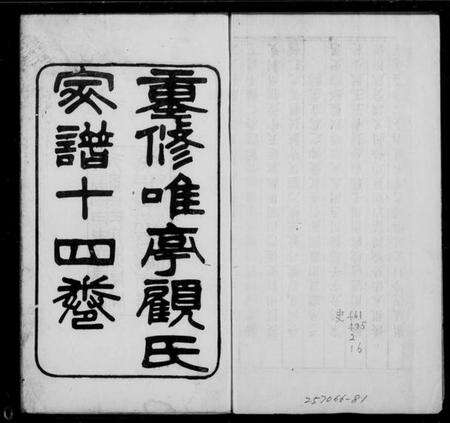 重修唯亭顧氏
家譜十四卷
史
461
435
2
16
257066-81